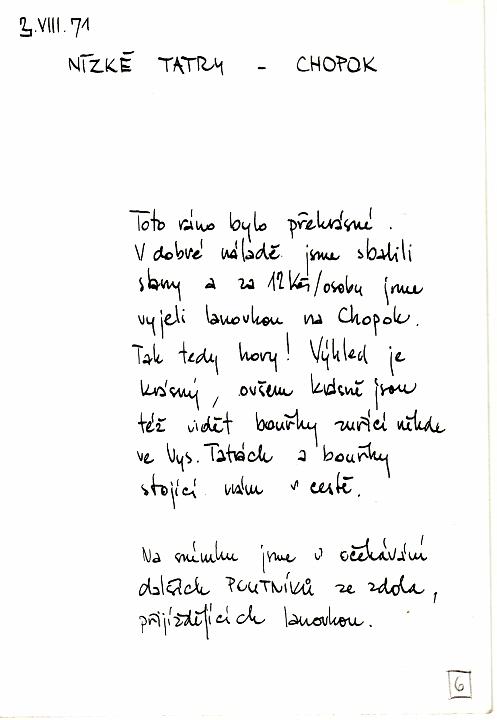 3.VIII.71
NÍZKÉ TATRY - CHOPOK
Toto ráno bylo překrásné.
V dobré náladě jsme sbalili
stany a za 12 Kčs/osobu jsme
vyjeli lanovkou na Chopok.
Tak tedy hory! Výhled je
krásný, ovšem krásně jsou
též vidět bouřky zuřící někde
ve Vys. Tatrách a bouřky
stojící nám v cestě.
Na snímku jsme v očekávání
dalších POUTNÍKŮ ze zdola,
přijíždějících lanovkou.
6